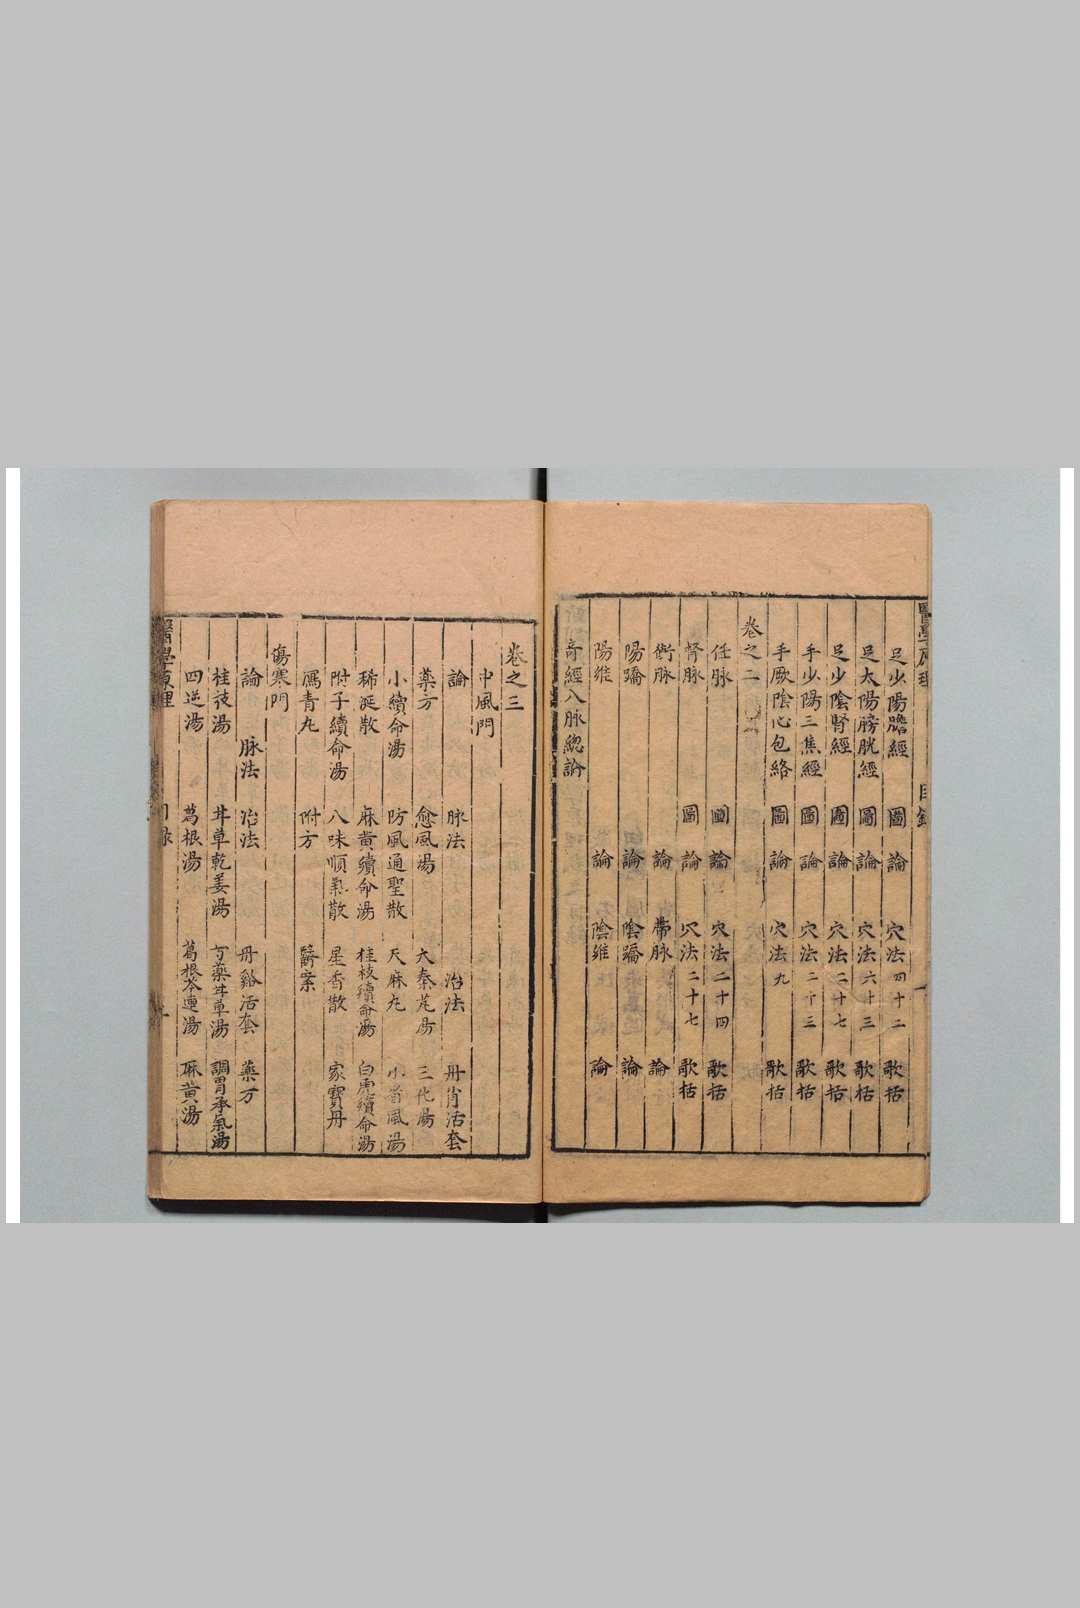 足少陽膽經 圖 論 穴法四十二 歌括
足太陽膀胱經 圖 論 穴法六十三 歌括
足少陰腎經 圖 論 穴法二十七 歌括
手少陽三焦經 圖 論 穴法二十三 歌括
手厥陰心包絡 圖 論 穴法九 歌括
卷之二
任脉 圖 論 穴法二十四 歌括
督脉 圖 論 穴法二十七 歌括
衝脉 論 帶脉 論
陽蹻 論 陰蹻 論
陽維 論 陰維 論
奇經八脉總論
卷之三
中風門
論 脉法 治法 丹谿活套
藥方 愈風湯 大秦芃湯 三化湯
小續命湯 防風通聖散 天麻丸 小省風湯
稀涎散 麻黄續命湯 桂枝續命湯 白虎續命湯
附子續命湯 八味順氣散 星香散 家寶丹
瀉青丸 附方 醫案
傷寒門
論 脉法 治法 丹谿活套 藥方
桂枝湯 甘草乾姜湯 芍藥甘草湯 調胃承氣湯
四逆湯 葛根湯 葛根芩連湯 麻黄湯
醫學原理